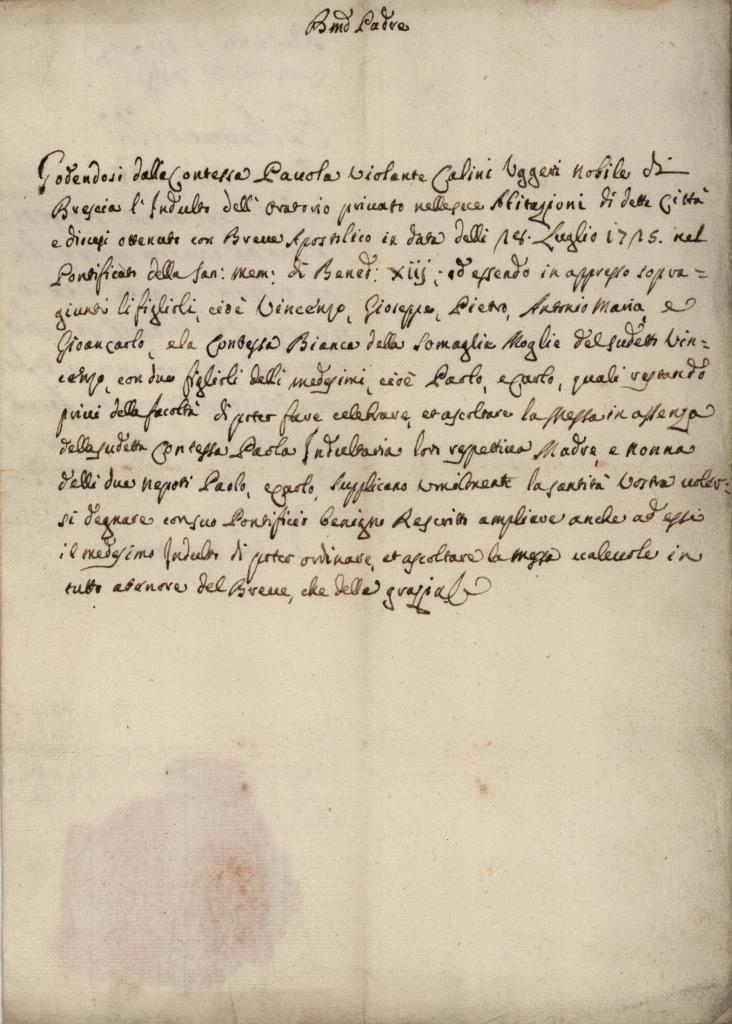 Bmo Padre
Godendosi dalla Contessa Pauola Violante Calini Uggeri Nobile di
Brescia l'Indulto dell'Oratorio priuato nelle sue Abitazioni di detta Città
e diocesi ottenuto con Breue Apostolico in data delli Luglio 1725. nel
Pontificato della San: mem: di Bened: XIIJ; ed essendo in appresso soprag=
giunti li figlioli, cioè Vincenzo, Gioseppe, Pietro, Antonio Maria, e
Gioancarlo, e la Contessa Bianca della Somaglia Moglie del sudetto Vin=
cenzo, con due figlioli delli medesimi, cioè Paolo, e Carlo, quali restando
priui della facoltà di poter fare celebrare, et ascoltare la Messa in assenza
della sudetta Contessa Paola Indultaria loro respettiua Madre, e nonna
delli due nepoti Paolo, e Carlo, Supplicano umilmente la santità Vostra uoler=
si degnare con suo Pontificio benigno Rescritto ampliare anche ad essi
il medesimo Indulto di poter ordinare, et ascoltare la messa ualeuole in
tutto a tenore del Breue, che della grazia